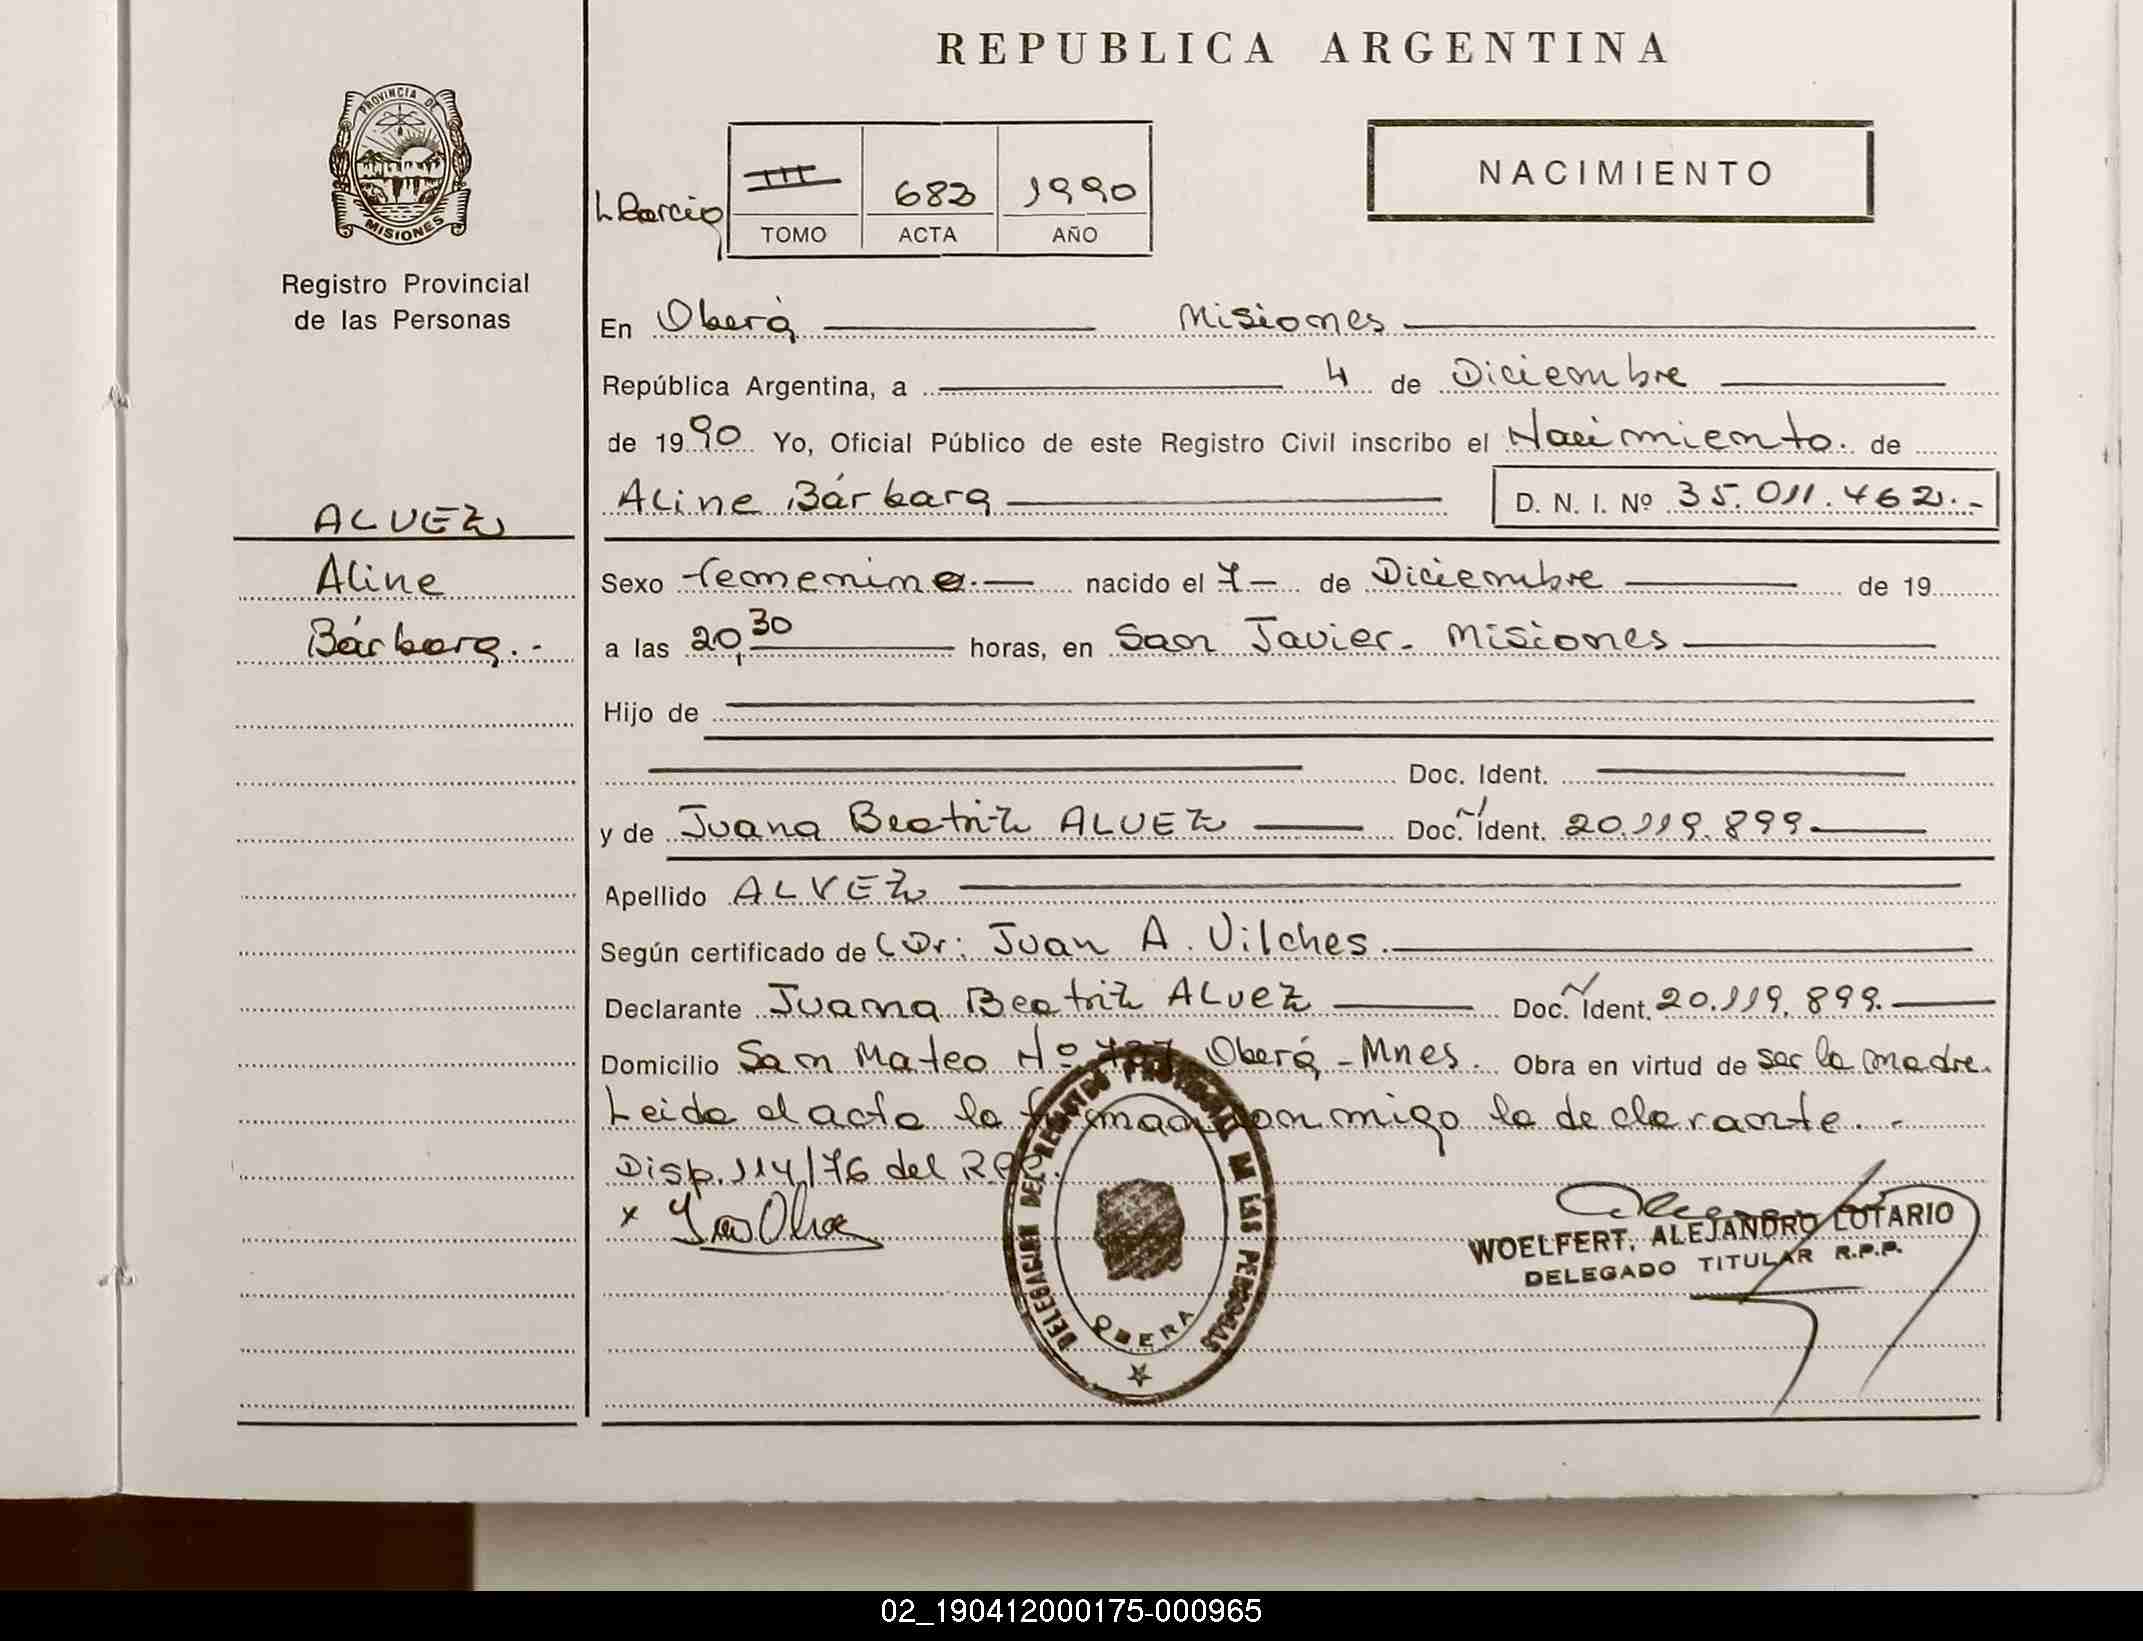 REPUBLICA ARGENTINA
PROVINCIA DE
MISIONES
Registro Provincial
de las Personas
III 683 1990
TOMO ACTA AÑO
NACIMIENTO
En Oberá Misiones
República Argentina, a 4 de Diciembre
de 1990 Yo, Oficial Público de este Registro Civil inscribo el Nacimiento de
Aline Bárbara D. N. I. Nº 35.011.462.-
ALVEZ
Aline
Bárbara.-
Sexo femenino.- nacido el 7 de Diciembre de 19
a las 20,30 horas, en San Javier. Misiones
Hijo de
Doc. Ident.
y de Juana Beatriz ALVEZ Doc. Ident. 20.119.899
Apellido ALVEZ
Según certificado de Dr: Juan A. Vilches.
Declarante Juana Beatriz ALVEZ Doc. Ident. 20.119.899.
Domicilio San Mateo Nº Oberá - Mnes. Obra en virtud de ser la madre.
Leida el acta la firman conmigo la declarante.-
Disp. 114/76 del
x
DELEGACION DEL REGISTRO PROVINCIAL DE LAS PERSONAS
OBERA
WOELFERT, ALEJANDRO LOTARIO
DELEGADO TITULAR R.P.P.
02_190412000175-000965